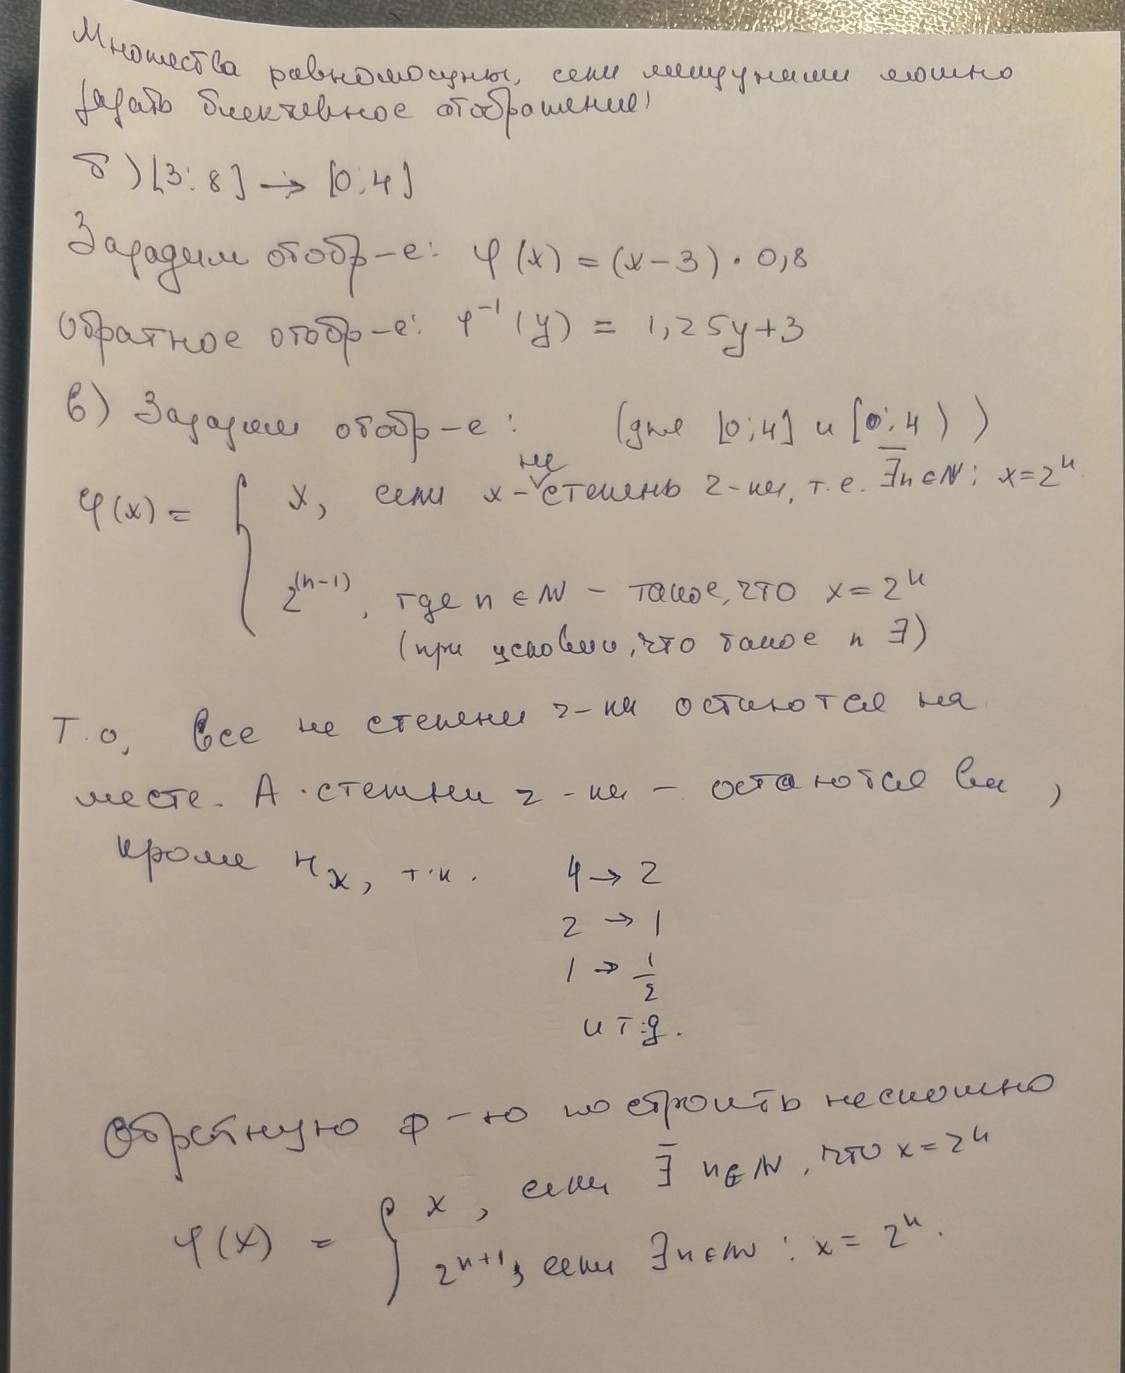 Множества равномощны, если между ними можно
задать биективное отображение!
б) [3; 8] → [0; 4]
Зададим отобр-е: φ(x) = (x-3) · 0,8
Обратное отобр-е: φ⁻¹(y) = 1,25y+3
в) Зададим отобр-е: (для [0;4] и [0;4))
φ(x) = { x, если x - не степень 2-ки, т.е. ∄n∈ℕ: x=2ⁿ
2⁽ⁿ⁻¹⁾, где n∈ℕ - такое, что x=2ⁿ
(при условии, что такое n ∃)
Т.о, все не степени 2-ки остаются на
месте. А степени 2-ки - остаются все,
кроме 4х, т.к. 4 → 2
2 → 1
1 → 1/2
и т.д.
Обратную ф-ю построить несложно
φ(x) = { x, если ∄ n∈ℕ, что x=2ⁿ
2ⁿ⁺¹, если ∃n∈ℕ: x=2ⁿ.